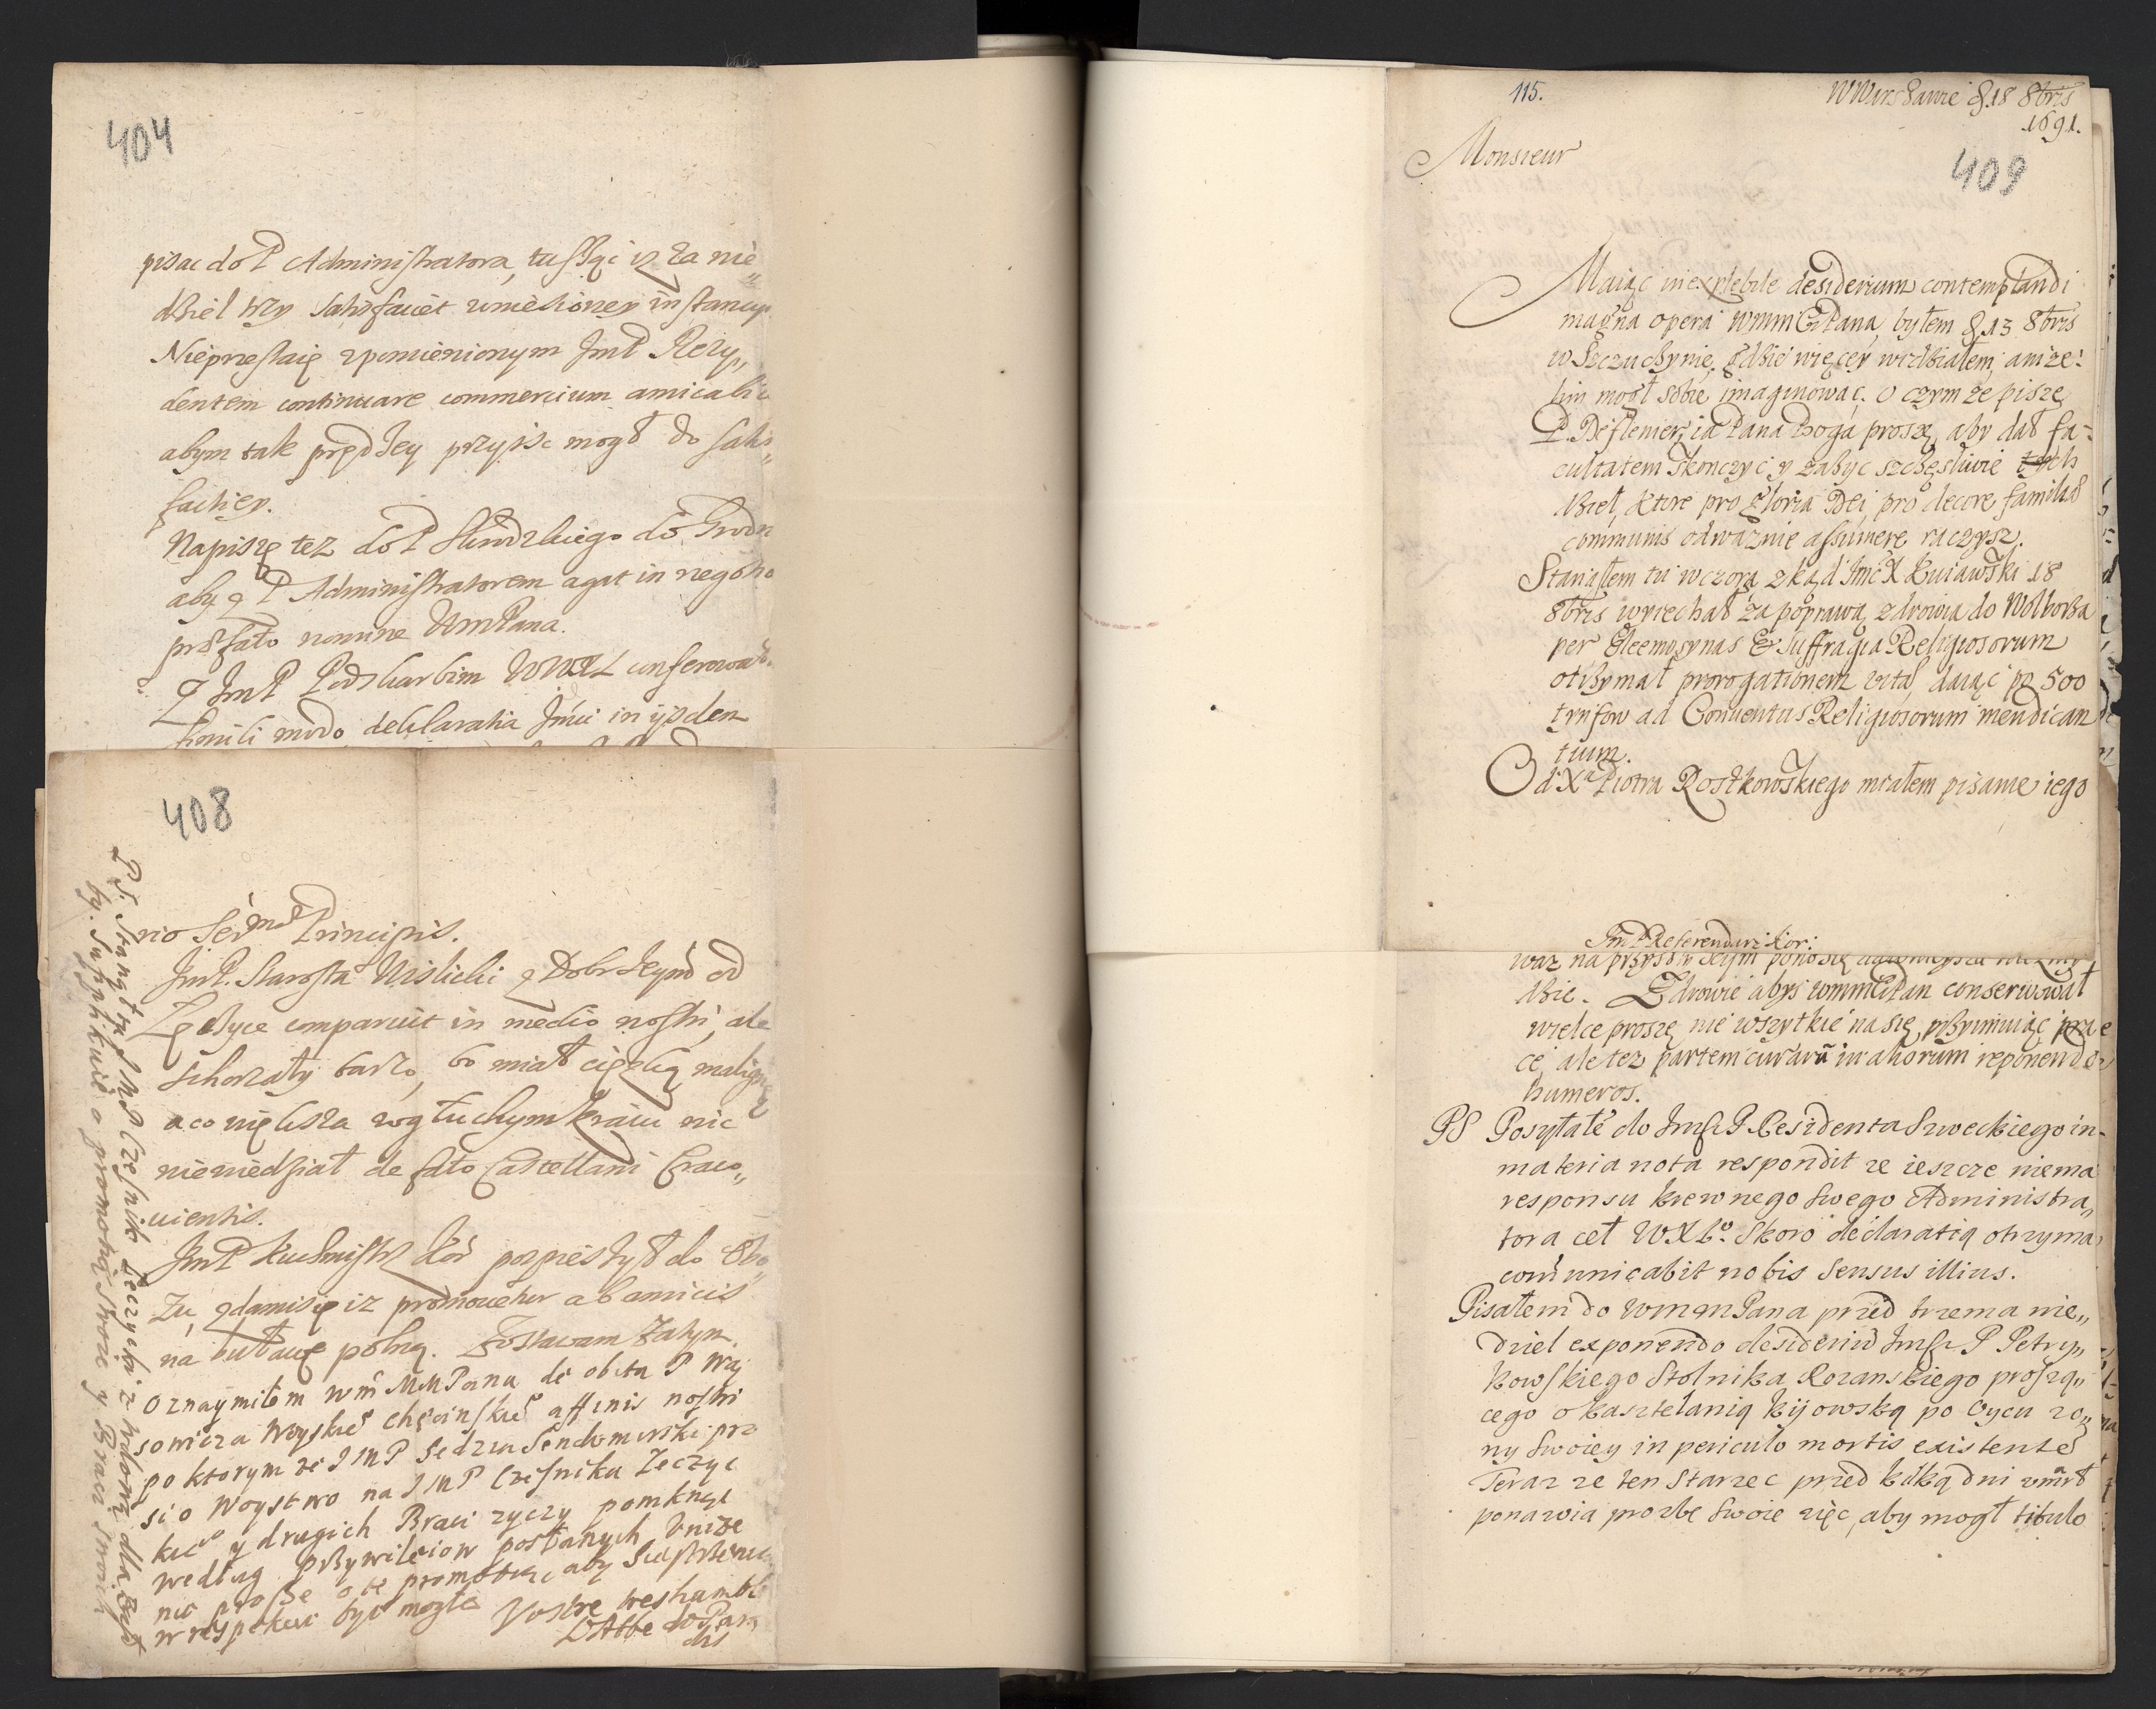 404
pisac do P Administratora, tuszqc yz za nie„
dziel trzy satisfaciet umiesioney instancyi
Nieprzestaię zpomienionym JmP Rezy„
dentem continuare commercium amicabile
abym tak prędzey przyisc mogł do satis„
factiey.
Napiszę tez do P do Grodn
aby z P Administratorem agat in negotio
præfato nomine WmPana.
Z JmP Podskarbim WWXL conferowa
simili modo, declaratia Jmci in ijsdem
408
rio Sermæ Principis.
JmP. Starosta Wislicki z Dobr Jeymć od
Łęczyce comparuit in medio nostri, ale
schorzały barzo, bo miał cięzką maligną
a co większa w głuchym kraiu nic
niewiedział de fato Castellani Craco„
uiensis.
JmP Kuchmistrz Kor pospieszył do Obo„
zu, zdamisię iz promouetur ab amicis
na buławę polną. Zostawam zatym
Oznaymiłem Wm MMPanu de obitu P Wą
sowicza Woyskiego Chęcinskiego affinis nostri
po ktorym ze JMP Sędzia Sendomirski pro
si o Woystwo na JMP Czesnika Łęczyc
kiego y drugich Braci zyczy pomknąc
według przywileiow posłanych Unize
nie prosze o te promotią, aby
w respekcie być mogła
Vostre treshumble
L'Abbe
PS. Stanął tu JMP Czesnik Łęczycki z wdową dla
by. Supplikuie o promotią swoię y Braci swoich
115.
WWarszawie d 18 8bris
1691.
409
Monsieur
Maiąc inexplebile desiderium contemplandi
magna opera WMMGPana, byłem d 13 8bris
w Szczuczynie, gdzie więcey widziałem, anize:
lim mogł sobie imaginować. O czym ze pisze
P. Deslenier, ia Pana Boga proszę, aby dał fa-
cultatem skonczyc y zazyc szczęsliwie tych
dzieł, ktore pro gloria Dei, pro decore familiæ
communis odwaznie assumere raczysz.
Stanąłem tu wczora, zkąd Jmć X Kuiawski 18
8bris wyiechał za poprawą zdrowia do Wolborza
per Eleemosynas & suffragia Religiosorum
otrzymał prorogationem vitæ, daiąc po 500
tynfow ad Conuentus Religiosorum mendican
tium.
Od Xa Piotra Rostkowskiego miałem pisanie iego
JmP Referendarz Kor:
waz na przyszły Seym ponosię
dzie. Zdrowie abys WMMGPan conserwował
wielce proszę, nie wszytkie na się przyimuiąc pra
ce, ale tez partem curarū in aliorum reponendo
humeros.
PS Posyłałē do Jmści P Residenta Szweckiego in-
materia nota respondit ze ieszcze niema
responsu krewnego swego Administra„
tora ceł WXLo. Skoro declaratią otrzyma,
com̄unicabit nobis sensus illius.
Pisałem do WMMPana przed trzema nie„
dziel exponendo desideriū Jmści P Petry„
kowskiego Stolnika Rozanskiego proszą„
cego o kasztelanią Kijowską po Oycu zo„
ny swoiey in periculo mortis existente
Teraz ze ten starzec przed kilką dni umarł
ponawia prozbe swoie więc, aby mogł titulo